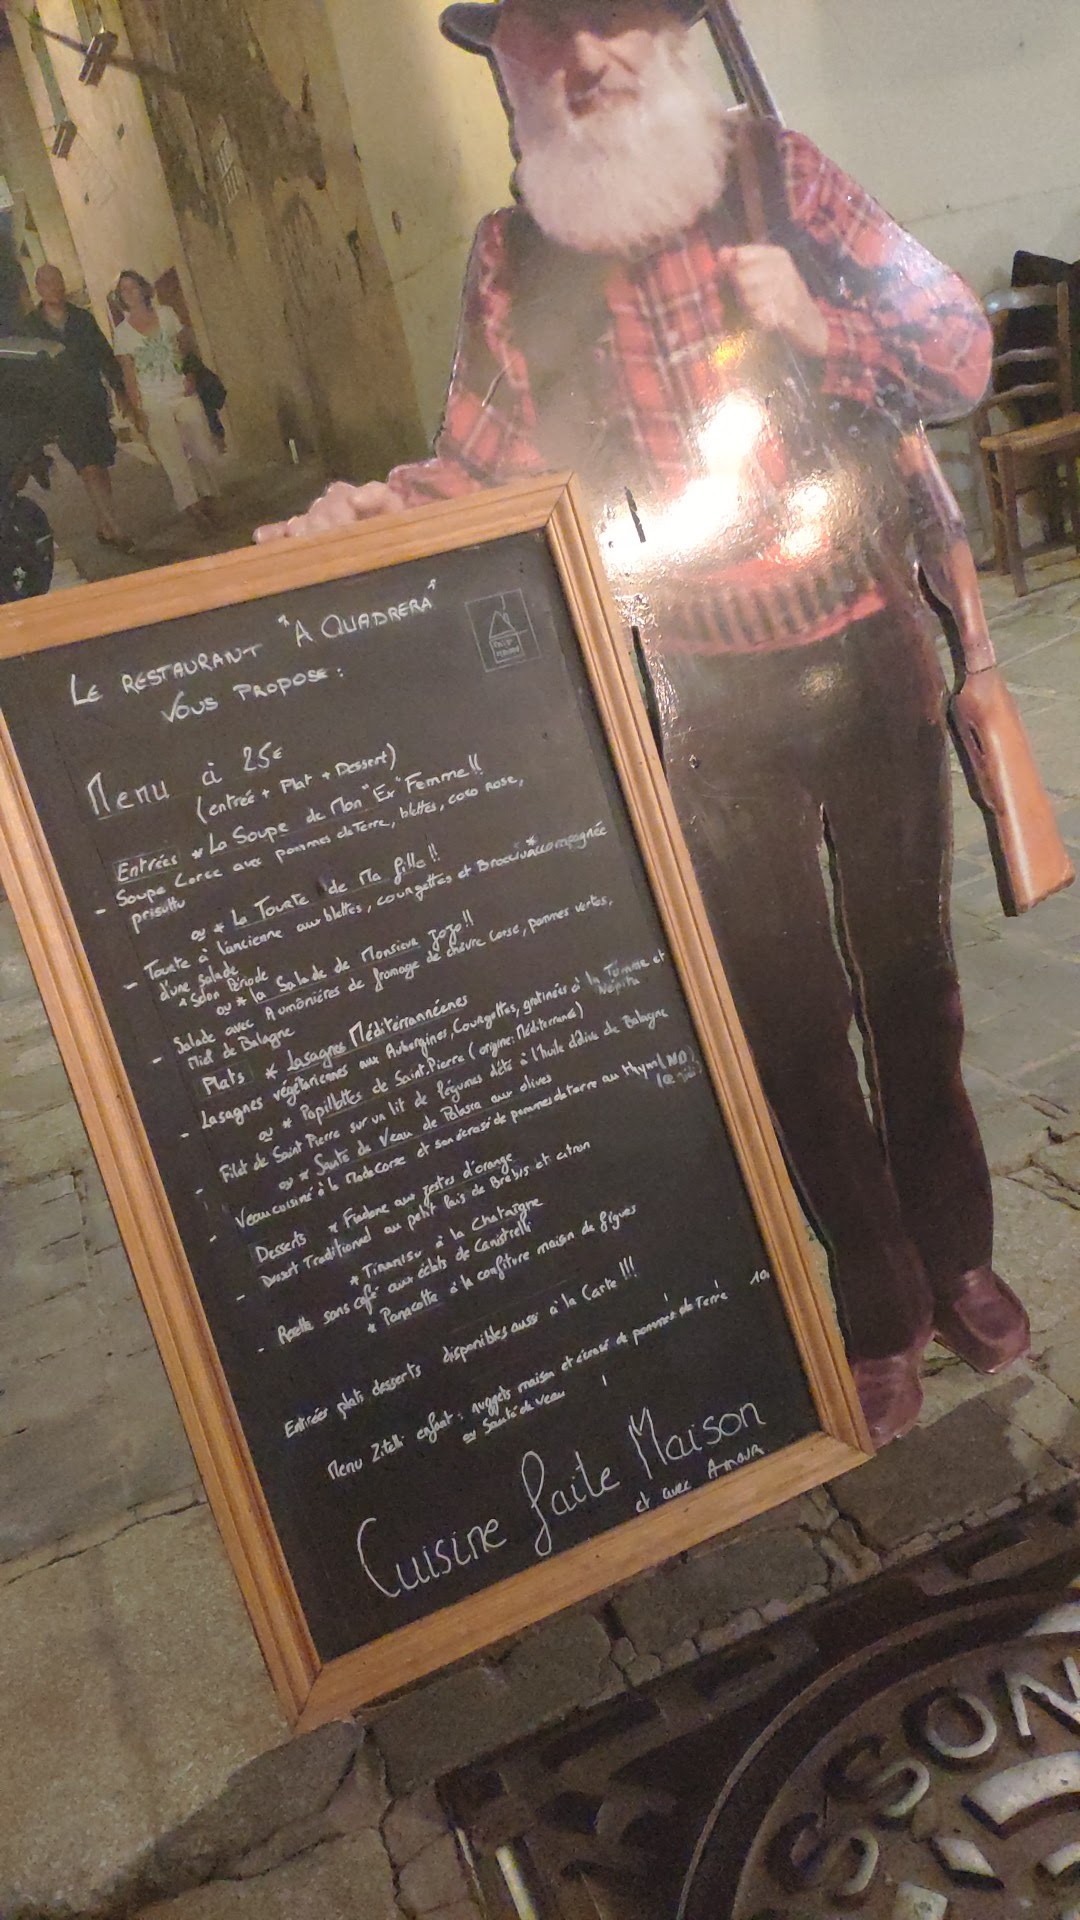 LE RESTAURANT "A QUADRERA"
VOUS PROPOSE :
FAIT MAISON
Menu à 25€
(entrée + Plat + Dessert)
Entrées * La Soupe de Mon "Ex" Femme !!
- Soupe Corse avec pommes de Terre, blettes, coco rose,
prisuttu
ou * La Tourte de Ma fille !!
- Tourte à l'ancienne aux blettes, courgettes et Brocciu* accompagnée
d'une salade
* Selon Période
ou * la Salade de Monsieur Jojo !!
- Salade avec Aumônières de fromage de chèvre Corse, pommes vertes,
Miel de Balagne
Plats * Lasagnes Méditérrannéenes
- Lasagnes végétariennes aux Aubergines, Courgettes, gratinées à la Tomme et
Népita
ou * Papillottes de Saint-Pierre (origine: Méditerrané)
- Filet de Saint Pierre sur un lit de légumes d'étés à l'huile d'olive de Balagne
ou * Sauté de Veau de Balagne aux olives
- Veau cuisiné à la Mode Corse et son écrasé de pommes de terre au thym
Desserts * Fiadone aux zestes d'orange
- Dessert Traditionnel au petit lais de Brebis et citron
* Tiramisu à la Chataigne
- Recette sans café aux éclats de Canistrelli
* Panacotte à la confiture maison de figues
Entrées plats desserts disponibles aussi à la Carte !!!
Menu Zitelli enfant : nuggets maison et écrasé de pommes de Terre 10
ou Sauté de veau
Cuisine faite Maison
et avec Amour
SSON